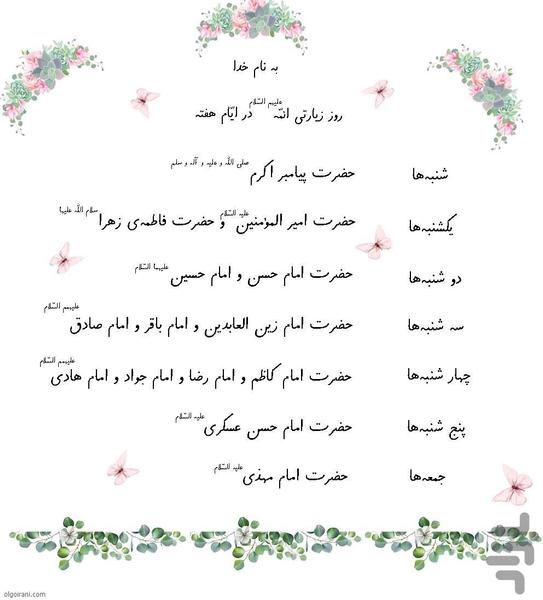 به نام خدا
روز زیارتی ائمّه علیهم السّلام در ایّام هفته
شنبه‌ها حضرت پیامبر اکرم صلی الله و علیه و آله و سلم
یکشنبه‌ها حضرت امیر المؤمنین علیه السّلام و حضرت فاطمه‌ی زهرا سلام الله علیها
دو شنبه‌ها حضرت امام حسن و امام حسین علیهما السّلام
سه شنبه‌ها حضرت امام زین العابدین و امام باقر و امام صادق علیهمم السّلام
چهار شنبه‌ها حضرت امام کاظم و امام رضا و امام جواد و امام هادی علیهمم السّلام
پنج شنبه‌ها حضرت امام حسن عسکری علیه السّلام
جمعه‌ها حضرت امام مهدی علیه السّلام
olgoirani.com